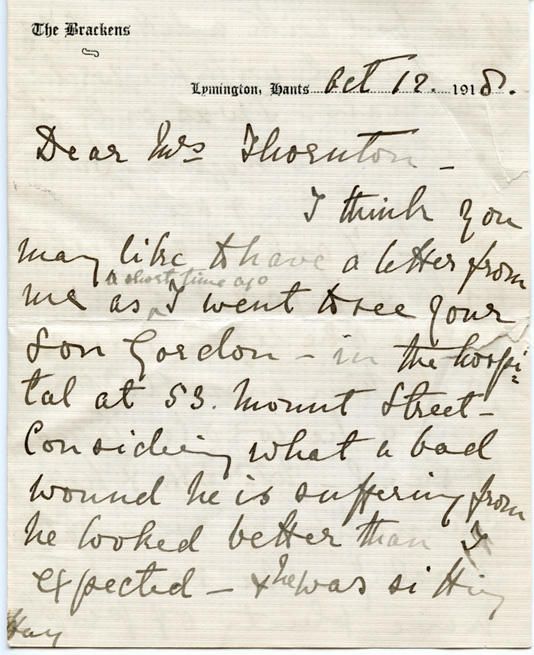 The Brackens
Lymington, Hants Oct 12. 1918.
Dear Mrs Thornton –
I think you
may like to have a letter from
a short time ago
me as ^ I went to see your
son Gordon – in the hospi-
tal at 53. Mount Street –
Considering what a bad
wound he is suffering from
he looked better than I
expected – & he was sitting